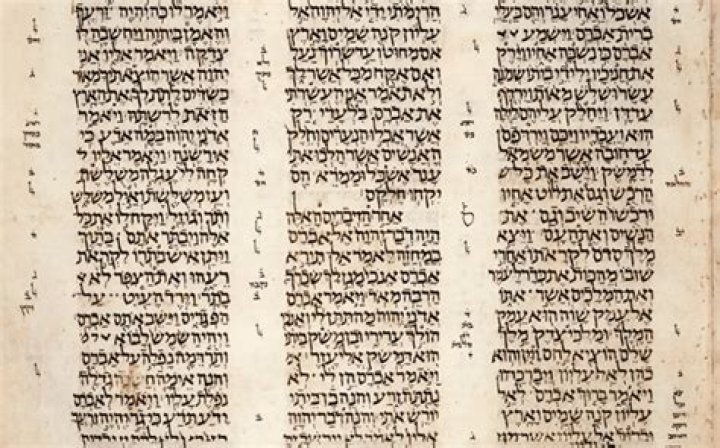 אשכל ואחי ענר והם בעלי
ברית אברם וישמע
אברם כי נשבה אחיו וירק
את חניכיו ילידי ביתו שמנה
עשר ושלש מאות וירדף
עד דן ויחלק עליהם לילה
הוא ועבדיו ויכם וירדפם
עד חובה אשר משמאל
לדמשק וישב את כל
הרכש וגם את לוט אחיו
ורכשו השיב וגם את
הנשים ואת העם ויצא
מלך סדם לקראתו אחרי
שובו מהכות את כדרלעמר
ואת המלכים אשר אתו
אל עמק שוה הוא עמק
המלך ומלכי צדק מלך
שלם הוציא לחם ויין והוא
כהן לאל עליון ויברכהו
ויאמר ברוך אברם לאל
עליון קנה שמים וארץ
הרמתי ידי אל יהוה אל
עליון קנה שמים וארץ
אם מחוט ועד שרוך נעל
ואם אקח מכל אשר לך
ולא תאמר אני העשרתי
את אברם בלעדי רק
אשר אכלו הנערים וחלק
האנשים אשר הלכו אתי
ענר אשכל וממרא הם
יקחו חלקם
אחר הדברים האלה
היה דבר יהוה אל אברם
במחזה לאמר אל תירא
אברם אנכי מגן לך שכרך
הרבה מאד ויאמר אברם
אדני יהוה מה תתן לי ואנכי
הולך ערירי ובן משק ביתי
הוא דמשק אליעזר
ויאמר אברם הן לי לא
נתתה זרע והנה בן ביתי
יורש אתי והנה דבר יהוה
אליו לאמר לא יירשך זה
ויאמר לו כה יהיה זרעך
והאמן ביהוה ויחשבה לו
צדקה ויאמר אליו אני
יהוה אשר הוצאתיך מאור
כשדים לתת לך את הארץ
הזאת לרשתה ויאמר
אדני יהוה במה אדע כי
אירשנה ויאמר אליו
קחה לי עגלה משלשת
ועז משלשת ואיל משלש
ותר וגוזל ויקח לו את כל
אלה ויבתר אתם בתוך
ויתן איש בתרו לקראת
רעהו ואת הצפר לא
בתר וירד העיט על
הפגרים וישב אתם אברם
ויהי השמש לבוא
ותרדמה נפלה על אברם
והנה אימה חשכה גדלה
נפלת עליו ויאמר לאברם
ידע תדע כי גר יהיה זרעך